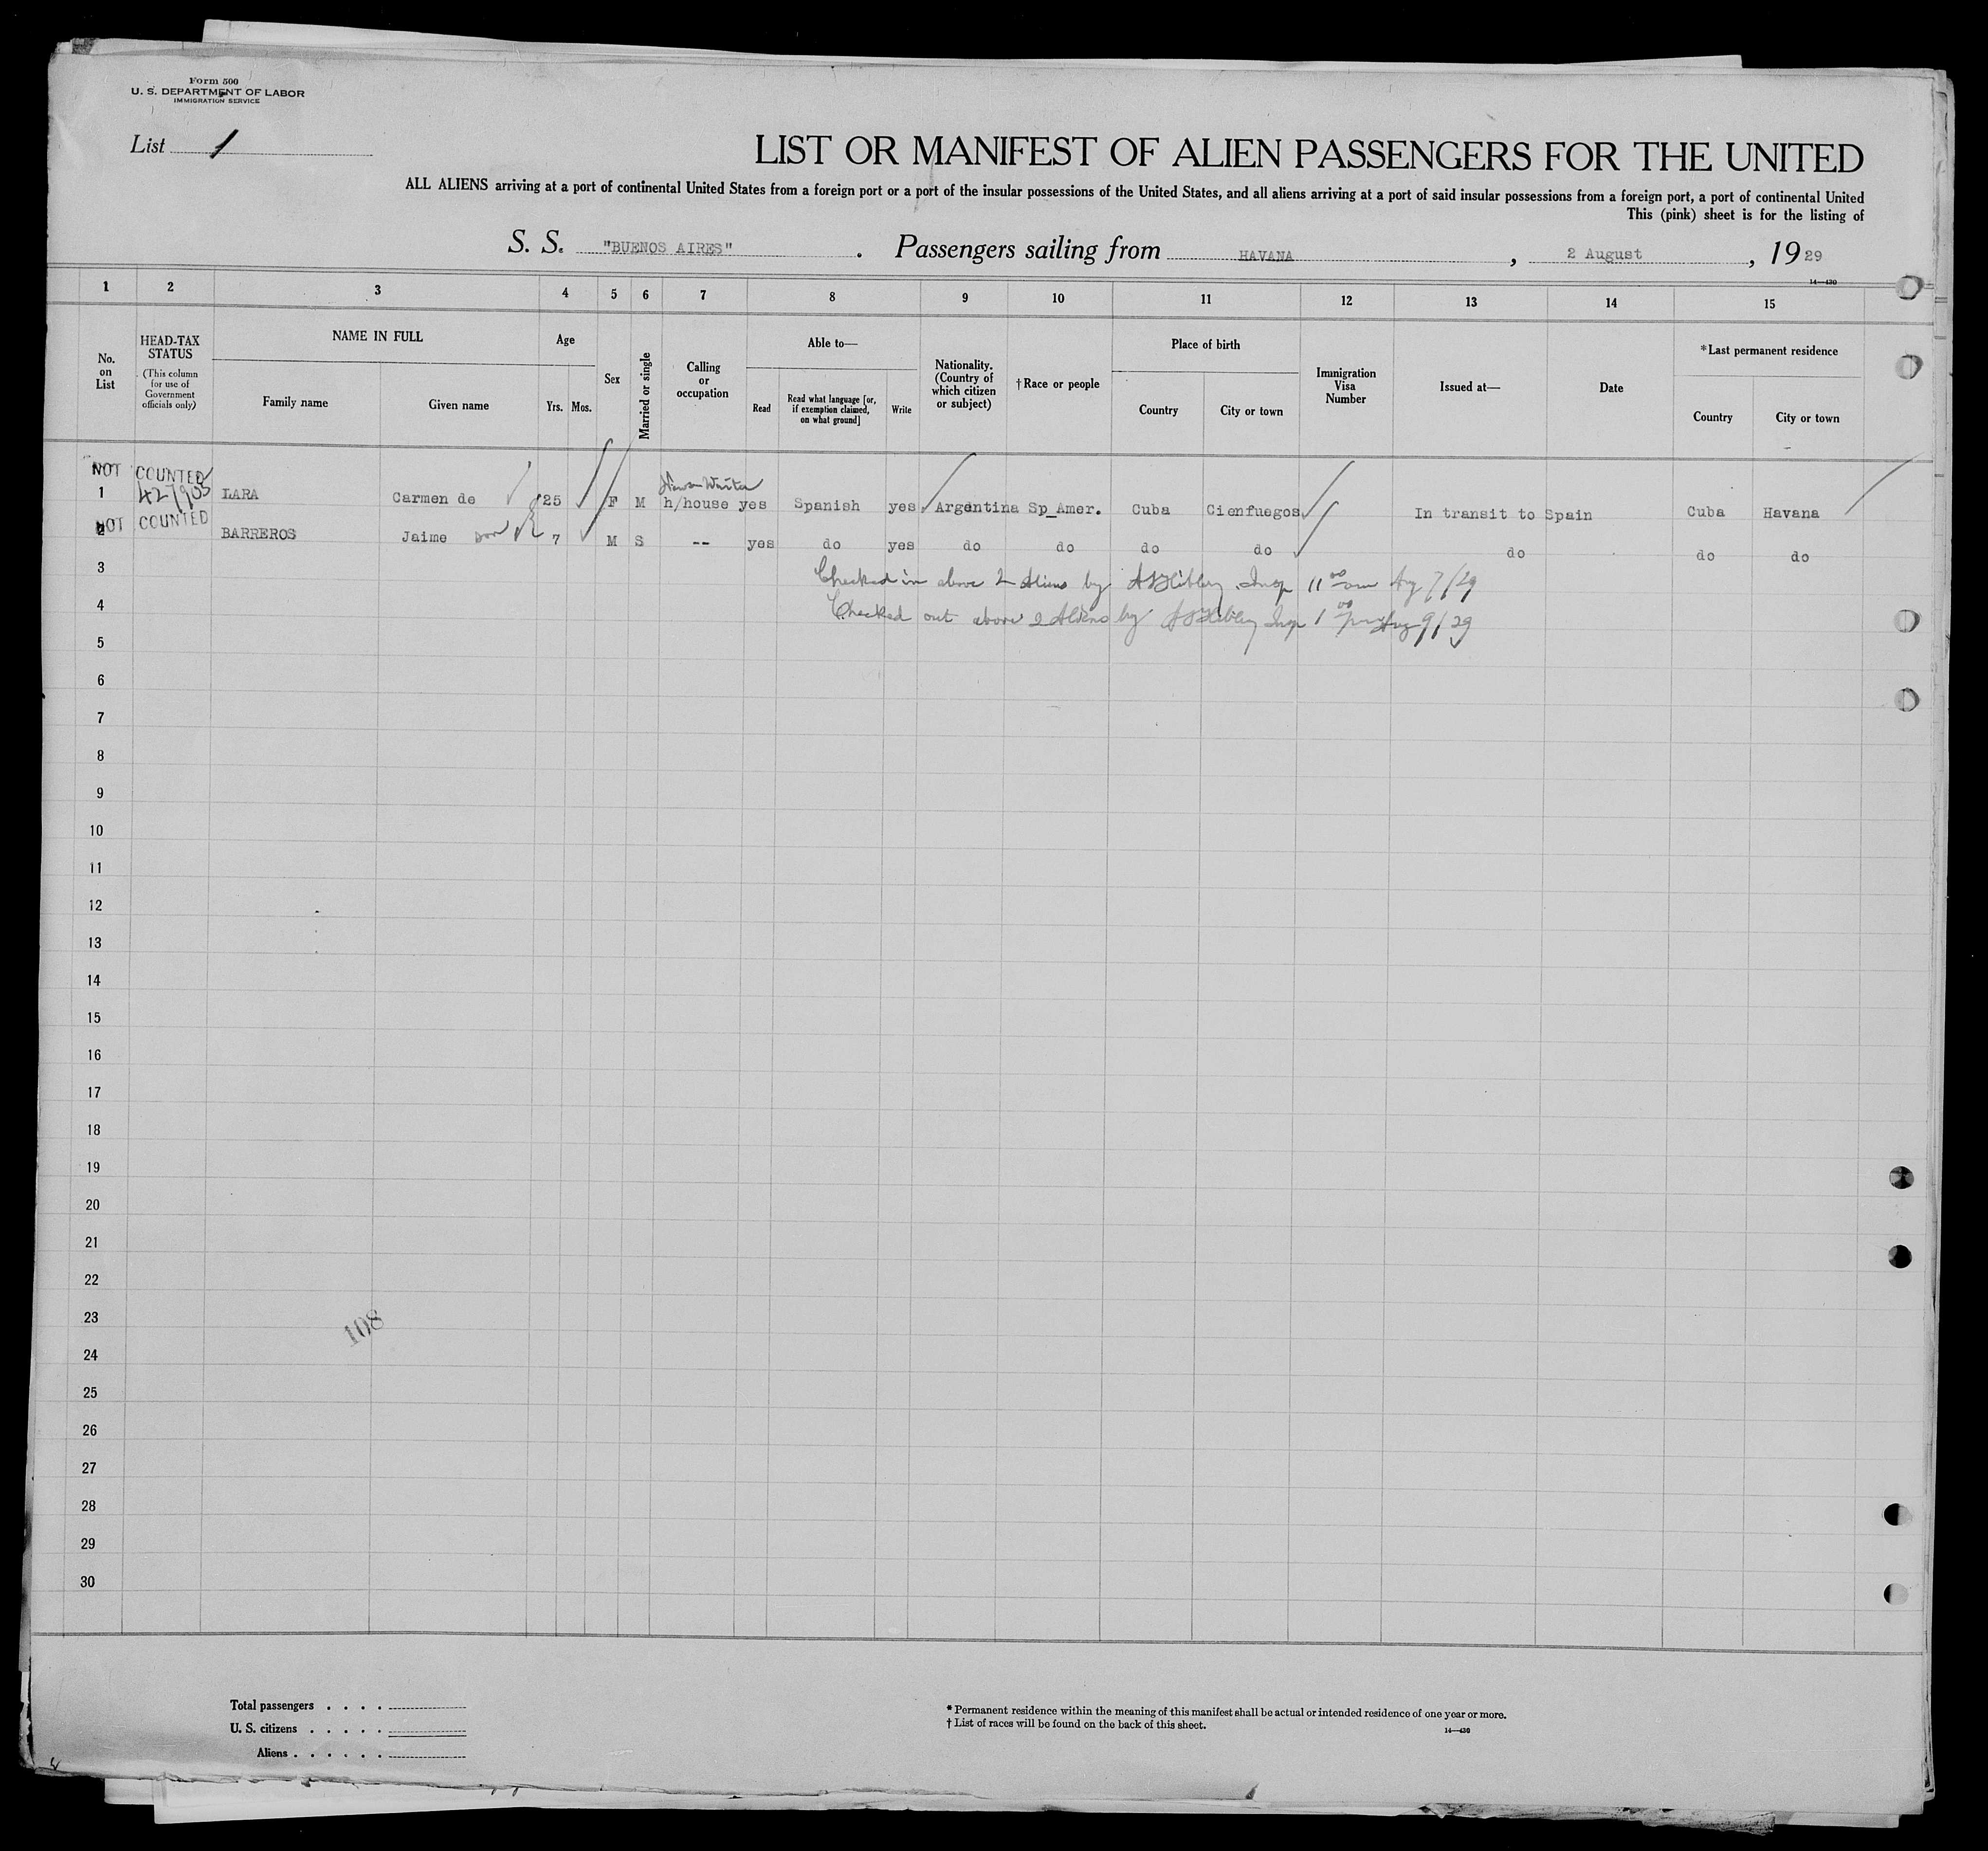 Form 500
U. S. DEPARTMENT OF LABOR
IMMIGRATION SERVICE
List 1
LIST OR MANIFEST OF ALIEN PASSENGERS FOR THE UNITED
ALL ALIENS arriving at a port of continental United States from a foreign port or a port of the insular possessions of the United States, and all aliens arriving at a port of said insular possessions from a foreign port, a port of continental United
This (pink) sheet is for the listing of
S. S. "BUENOS AIRES". Passengers sailing from HAVANA, 2 August, 1929
14—430
1 2 3 4 5 6 7 8 9 10 11 12 13 14 15
No. on List
HEAD-TAX STATUS
(This column for use of Government officials only)
NAME IN FULL
Family name
Given name
Age
Yrs. Mos.
Sex
Married or single
Calling or occupation
Able to—
Read
Read what language [or, if exemption claimed, on what ground]
Write
Nationality. (Country of which citizen or subject)
† Race or people
Place of birth
Country
City or town
Immigration Visa Number
Issued at—
Date
* Last permanent residence
Country
City or town
NOT COUNTED
1 LARA Carmen de 25 F M h/house yes Spanish yes Argentina Sp_Amer. Cuba Cienfuegos In transit to Spain Cuba Havana
NOT COUNTED
2 BARREROS Jaime son 7 M S -- yes do yes do do do do do do do
3 Checked in above 2 Aliens by Insp 11 00 am Aug 7/29
4 Checked out above 2 Aliens by Insp 1 00 pm Aug 9/29
5
6
7
8
9
10
11
12
13
14
15
16
17
18
19
20
21
22
23
108
24
25
26
27
28
29
30
Total passengers . . . .
U. S. citizens . . . . .
Aliens . . . . . .
* Permanent residence within the meaning of this manifest shall be actual or intended residence of one year or more.
† List of races will be found on the back of this sheet.
14—430